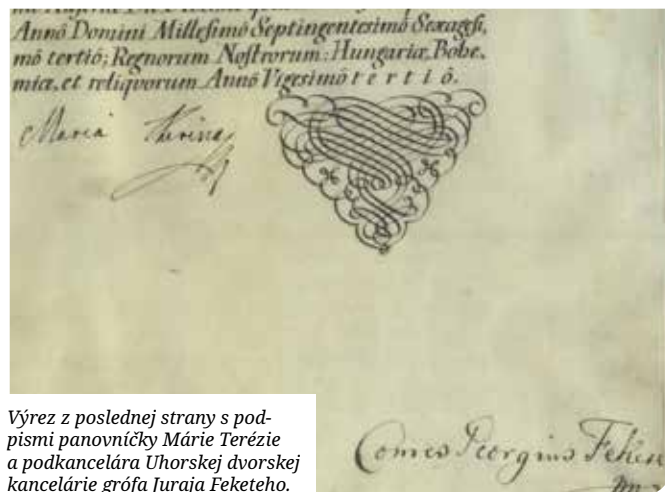 Annô Domini Millesimô Septingentesimô Sexagesi,
mô tertiô; Regnorum Nostrorum: Hungariæ, Bohe,
miæ, et reliquorum Annô Vigesimô tertiô.
Maria Theresia
Výrez z poslednej strany s pod-
pismi panovníčky Márie Terézie
a podkancelára Uhorskej dvorskej
kancelárie grófa Juraja Feketeho.
Comes Georgius Feke